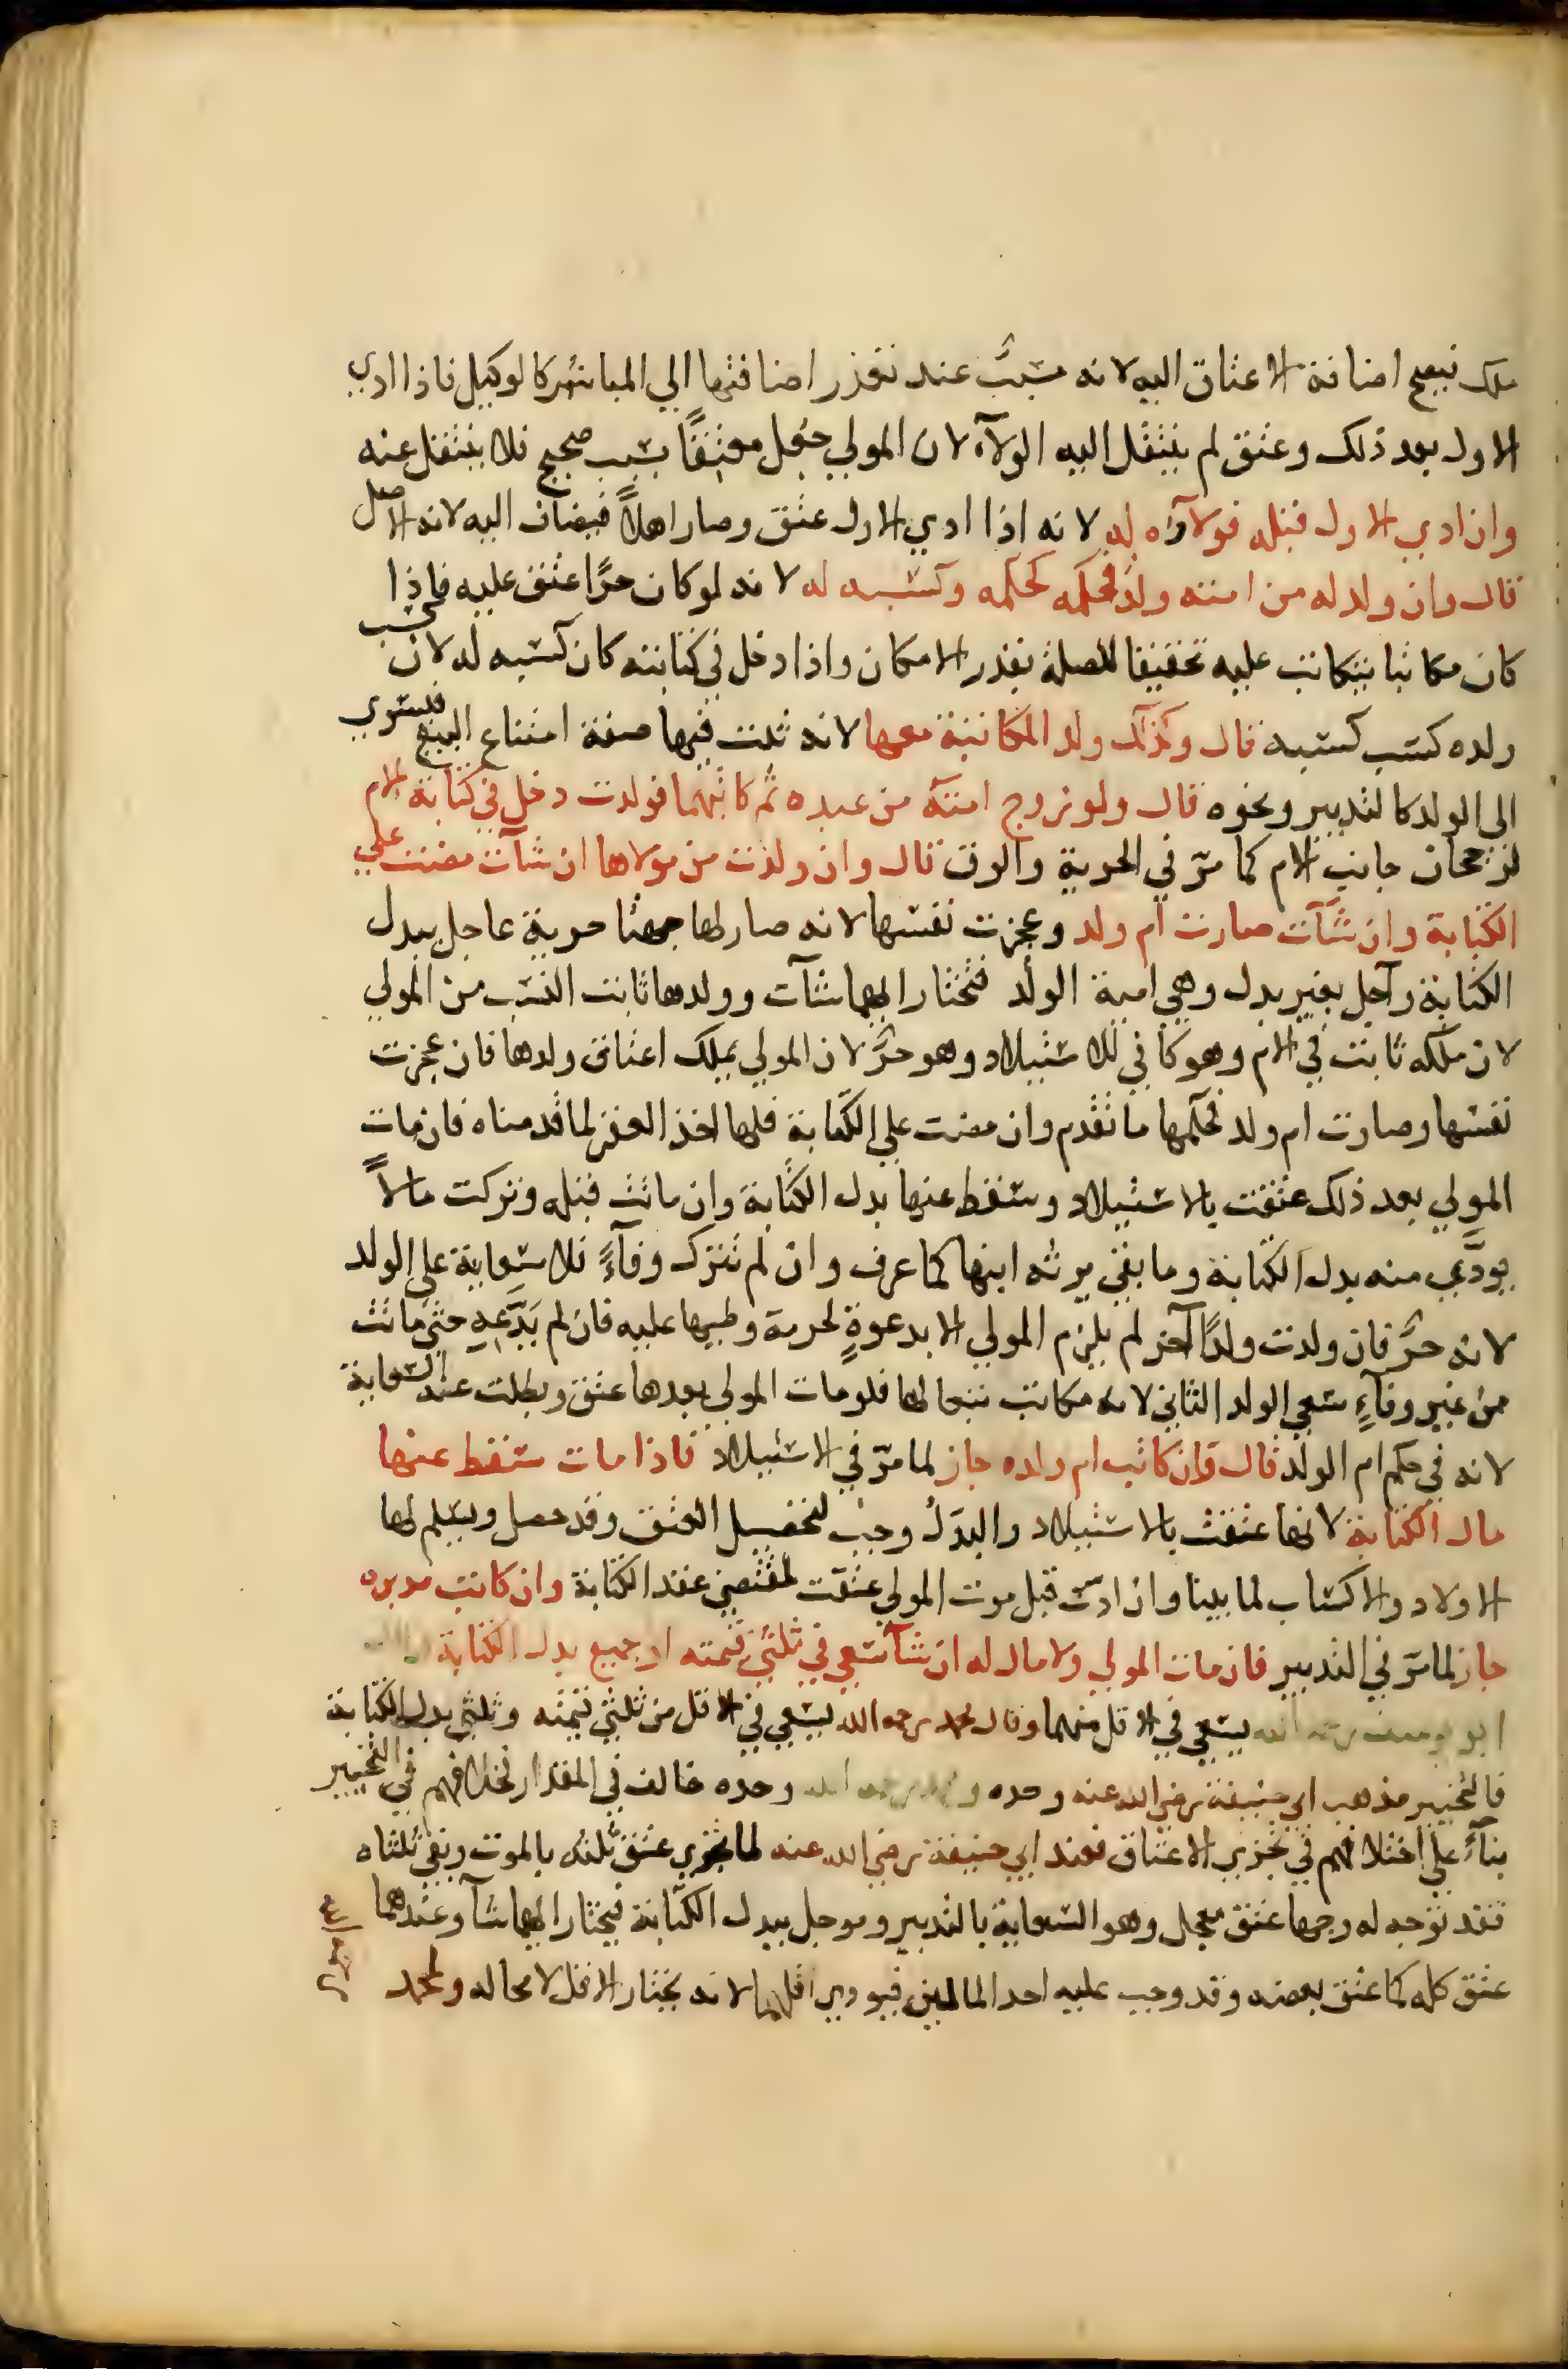 ملك فيصح اضافة الاعتاق اليه لانه مسبّب عند تعذر اضافتها الي المباشر كالوكيل فاذا ادي
الاول بعد ذلك وعتق لم ينتقل اليه الولآء لان المولي جعل معتِقًا بسبب صحيح فلا ينتقل عنه
وان ادي الاول قبله فولآؤه له لانه اذا ادي الاول عتق وصار اهلاً فيضاف اليه لانه الاصل
قال وان ولد له من امته ولد فحكمه كحكمه وكسبه له لانه لو كان حرًا عتق عليه فاذا
كان مكاتبا يتكاتب عليه تحقيقا للصلة بقدر الامكان واذا دخل في كتابته كان كسبه له لان كسب
ولده كسب كسبه قال وكذلك ولد المكاتبة معها لانه ثبت فيها صفة امتناع البيع فيسري
الى الولد كالتدبير ونحوه قال ولو زوج امته من عبده ثم كاتبهما فولدت دخل في كتابة الام
لرجحان جانب الام كما مرّ في الحرية والرق قال وان ولدت من مولاها ان شآت مضت علي
الكتابة وان شآت صارت ام ولد وعجزت نفسها لانه صار لها جهتا حرية عاجل ببدل
الكتابة وآجل بغير بدل وهي امية الولد فتختار ايهما شآت وولدها ثابت النسب من المولي
لان ملكه ثابت في الام وهو كافي للاستيلاد وهو حرٌ لان المولي يملك اعتاق ولدها فان عجزت
نفسها وصارت ام ولد فحكمها ما تقدم وان مضت علي الكتابة فلها اخذ العقر لما قدمناه فان مات
المولي بعد ذلك عتقت بالاستيلاد وسقط عنها بدل الكتابة وان ماتت قبله وتركت مالاً
يودّي منه بدل الكتابة وما بقي يرثه ابنها كما عرف وان لم تترك وفآءً فلا سعاية على الولد
لانه حرٌ فان ولدت ولدًا آخر لم يلزم المولي الا بدعوةٍ لحرمة وطيها عليه فان لم يدّعه حتى ماتت
من غير وفآءٍ سعي الولد الثاني لانه مكاتب تبعا لها فلو مات المولي بعدها عتق وبطلت عنه السعاية
لانه في حكم ام الولد قال وان كاتب ام ولده جاز لما مرّ في الاستيلاد فاذا مات سقط عنها
مال الكتابة لانها عتقت بالاستيلاد والبدل وجب لتحصيل العتق وقد حصل ويسلم لها
الاولاد والاكساب لما بينا وان ادت قبل موت المولي عتقت لمقتضي عقد الكتابة وان كاتب مدبره
جاز لما مرّ في التدبير فان مات المولي ولا مال له ان شآ سعي في ثلثي قيمته او جميع بدل الكتابة وقال
ابو يوسف رحمه الله يسعي في الاقل منهما وقال محمد رحمه الله يسعي في الاقل من ثلثي قيمته وثلثي بدل الكتابة
فالتخيير مذهب ابي حنيفة رضي الله عنه وحده ومحمد رحمه الله وحده خالف في المقدار فخلافهم في التخيير
بنآءً علي اختلافهم في تجزي الاعتاق فعند ابي حنيفة رضي الله عنه لما تجزي عتق ثلثه بالموت وبقي ثلثاه
فقد توجه له وجها عتق معجل وهو السعاية بالتدبير وموجل ببدل الكتابة فيختار ايهما شآ وعندهما
عتق كله كما عتق بعضه وقد وجب عليه احد المالين فيودي اقلهما لانه يختار الاقل لا محاله ولمحمد